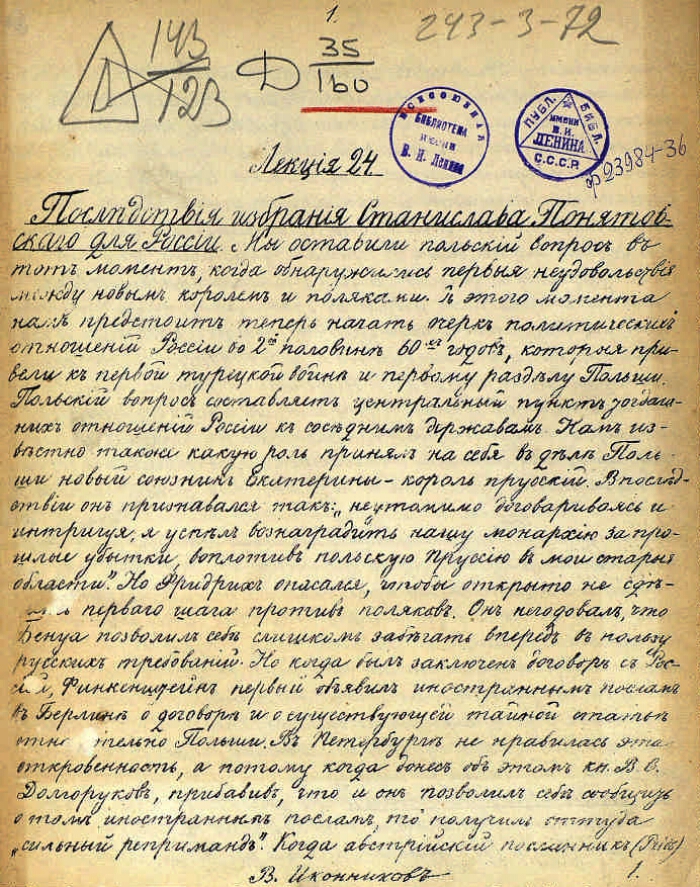 1.
243-3-72
143
123
Д 35
160
ВСЕСОЮЗНАЯ
БИБЛИОТЕКА
ИМЕНИ
В. И. Ленина
ПУБЛ. БИБЛ.
ИМЕНИ
В. И.
ЛЕНИНА
С.С.С.Р.
ф 23984-36
Лекція 24.
Послѣдствія избранія Станислава Понятов-
скаго для Россіи. Мы оставили польскій вопросъ въ
тотъ моментъ, когда обнаружились первыя неудовольствія
между новымъ королемъ и поляками. Съ этого момента
намъ предстоитъ теперь начать очеркъ политическихъ
отношеній Россіи во 2й половинѣ 60хъ годовъ, которыя при-
вели къ первой турецкой войнѣ и первому раздѣлу Польши.
Польскій вопросъ составляетъ центральный пунктъ тогдаш-
нихъ отношеній Россіи къ сосѣднимъ державамъ. Намъ из-
вѣстно также какую роль принялъ на себя въ дѣлѣ Поль-
ши новый союзникъ Екатерины – король прусскій. Впослѣд-
ствіи онъ признавался такъ: „неутомимо договариваясь и
интригуя, я успѣлъ вознаградить нашу монархію за про-
шлые убытки, воплотивъ польскую Пруссію въ мои старыя
области". Но Фридрихъ опасался, чтобы открыто не сдѣ-
лать перваго шага противъ поляковъ. Онъ негодовалъ, что
Бенуа позволилъ себѣ слишкомъ забѣгать впередъ въ пользу
русскихъ требованій. Но когда былъ заключенъ договоръ съ Рос-
сіей, Финкенштейнъ первый объявилъ иностраннымъ посламъ
въ Берлинѣ о договорѣ и о существующей тайной статьѣ
относительно Польши. Въ Петербургѣ не нравилась эта
откровенность, а потому когда донесъ объ этомъ кн. В. С.
Долгоруковъ, прибавивъ, что и онъ позволилъ себѣ сообщить
о томъ иностраннымъ посламъ, то получилъ оттуда
„сильный репримандъ". Когда австрійскій посланникъ (Рейсъ)
В. Иконниковъ
1.